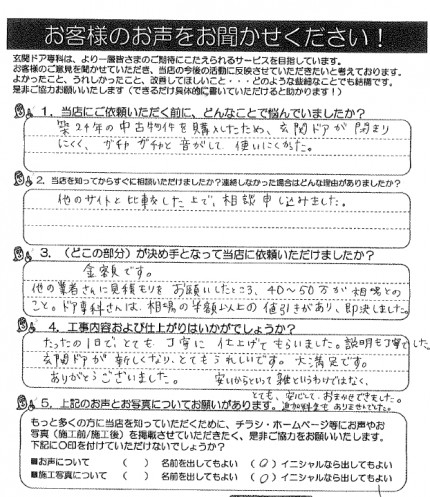 お客様のお声をお聞かせください！
玄関ドア専科は、より一層皆さまのご期待にこたえられるサービスを目指しています。
お客様のご意見を聞かせていただき、当店の今後の活動に反映させていただきたいと考えております。
よかったこと、うれしかったこと、改善してほしいこと・・・どのような些細なことでも結構です。
是非ご協力お願いいたします（できるだけ具体的に書いていただけると助かります！）
1．当店にご依頼いただく前に、どんなことで悩んでいましたか？
築24年の中古物件を購入したため、玄関ドアが閉まり
にくく、ガチャガチャと音がして使いにくかった。
2．当店を知ってからすぐに相談いただけましたか？連絡しなかった場合はどんな理由がありましたか？
他のサイトと比較した上で、相談申し込みました。
3．（どこの部分）が決め手となって当店に依頼いただけましたか？
金額です。
他の業者さんに見積モリをお願いしたところ、40～50万が相場との
こと。ドア専科さんは、相場の半額以上の値引きがあり、即決しました。
4．工事内容および仕上がりはいかがでしょうか？
たったの1日で、とても丁寧に仕上げてもらいました。説明も丁寧でした。
玄関ドアが新しくなり、とてもうれしいです。大満足です。
ありがとうございました。 安いからといって雑というわけではなく、
とても、安心して、おまかせできました。
追加料金もありませんでした。
5．上記のお声とお写真についてお願いがあります。
もっと多くの方に当店を知っていただくために、チラシ・ホームページ等にお声やお
写真（施工前/施工後）を掲載させていただきたく、是非ご協力をお願いいたします。
下記に〇印を付けていただけないでしょうか？
■お声について （　） 名前を出してもよい （○）イニシャルなら出してもよい
■施工写真について （　） 名前を出してもよい （○）イニシャルなら出してもよい